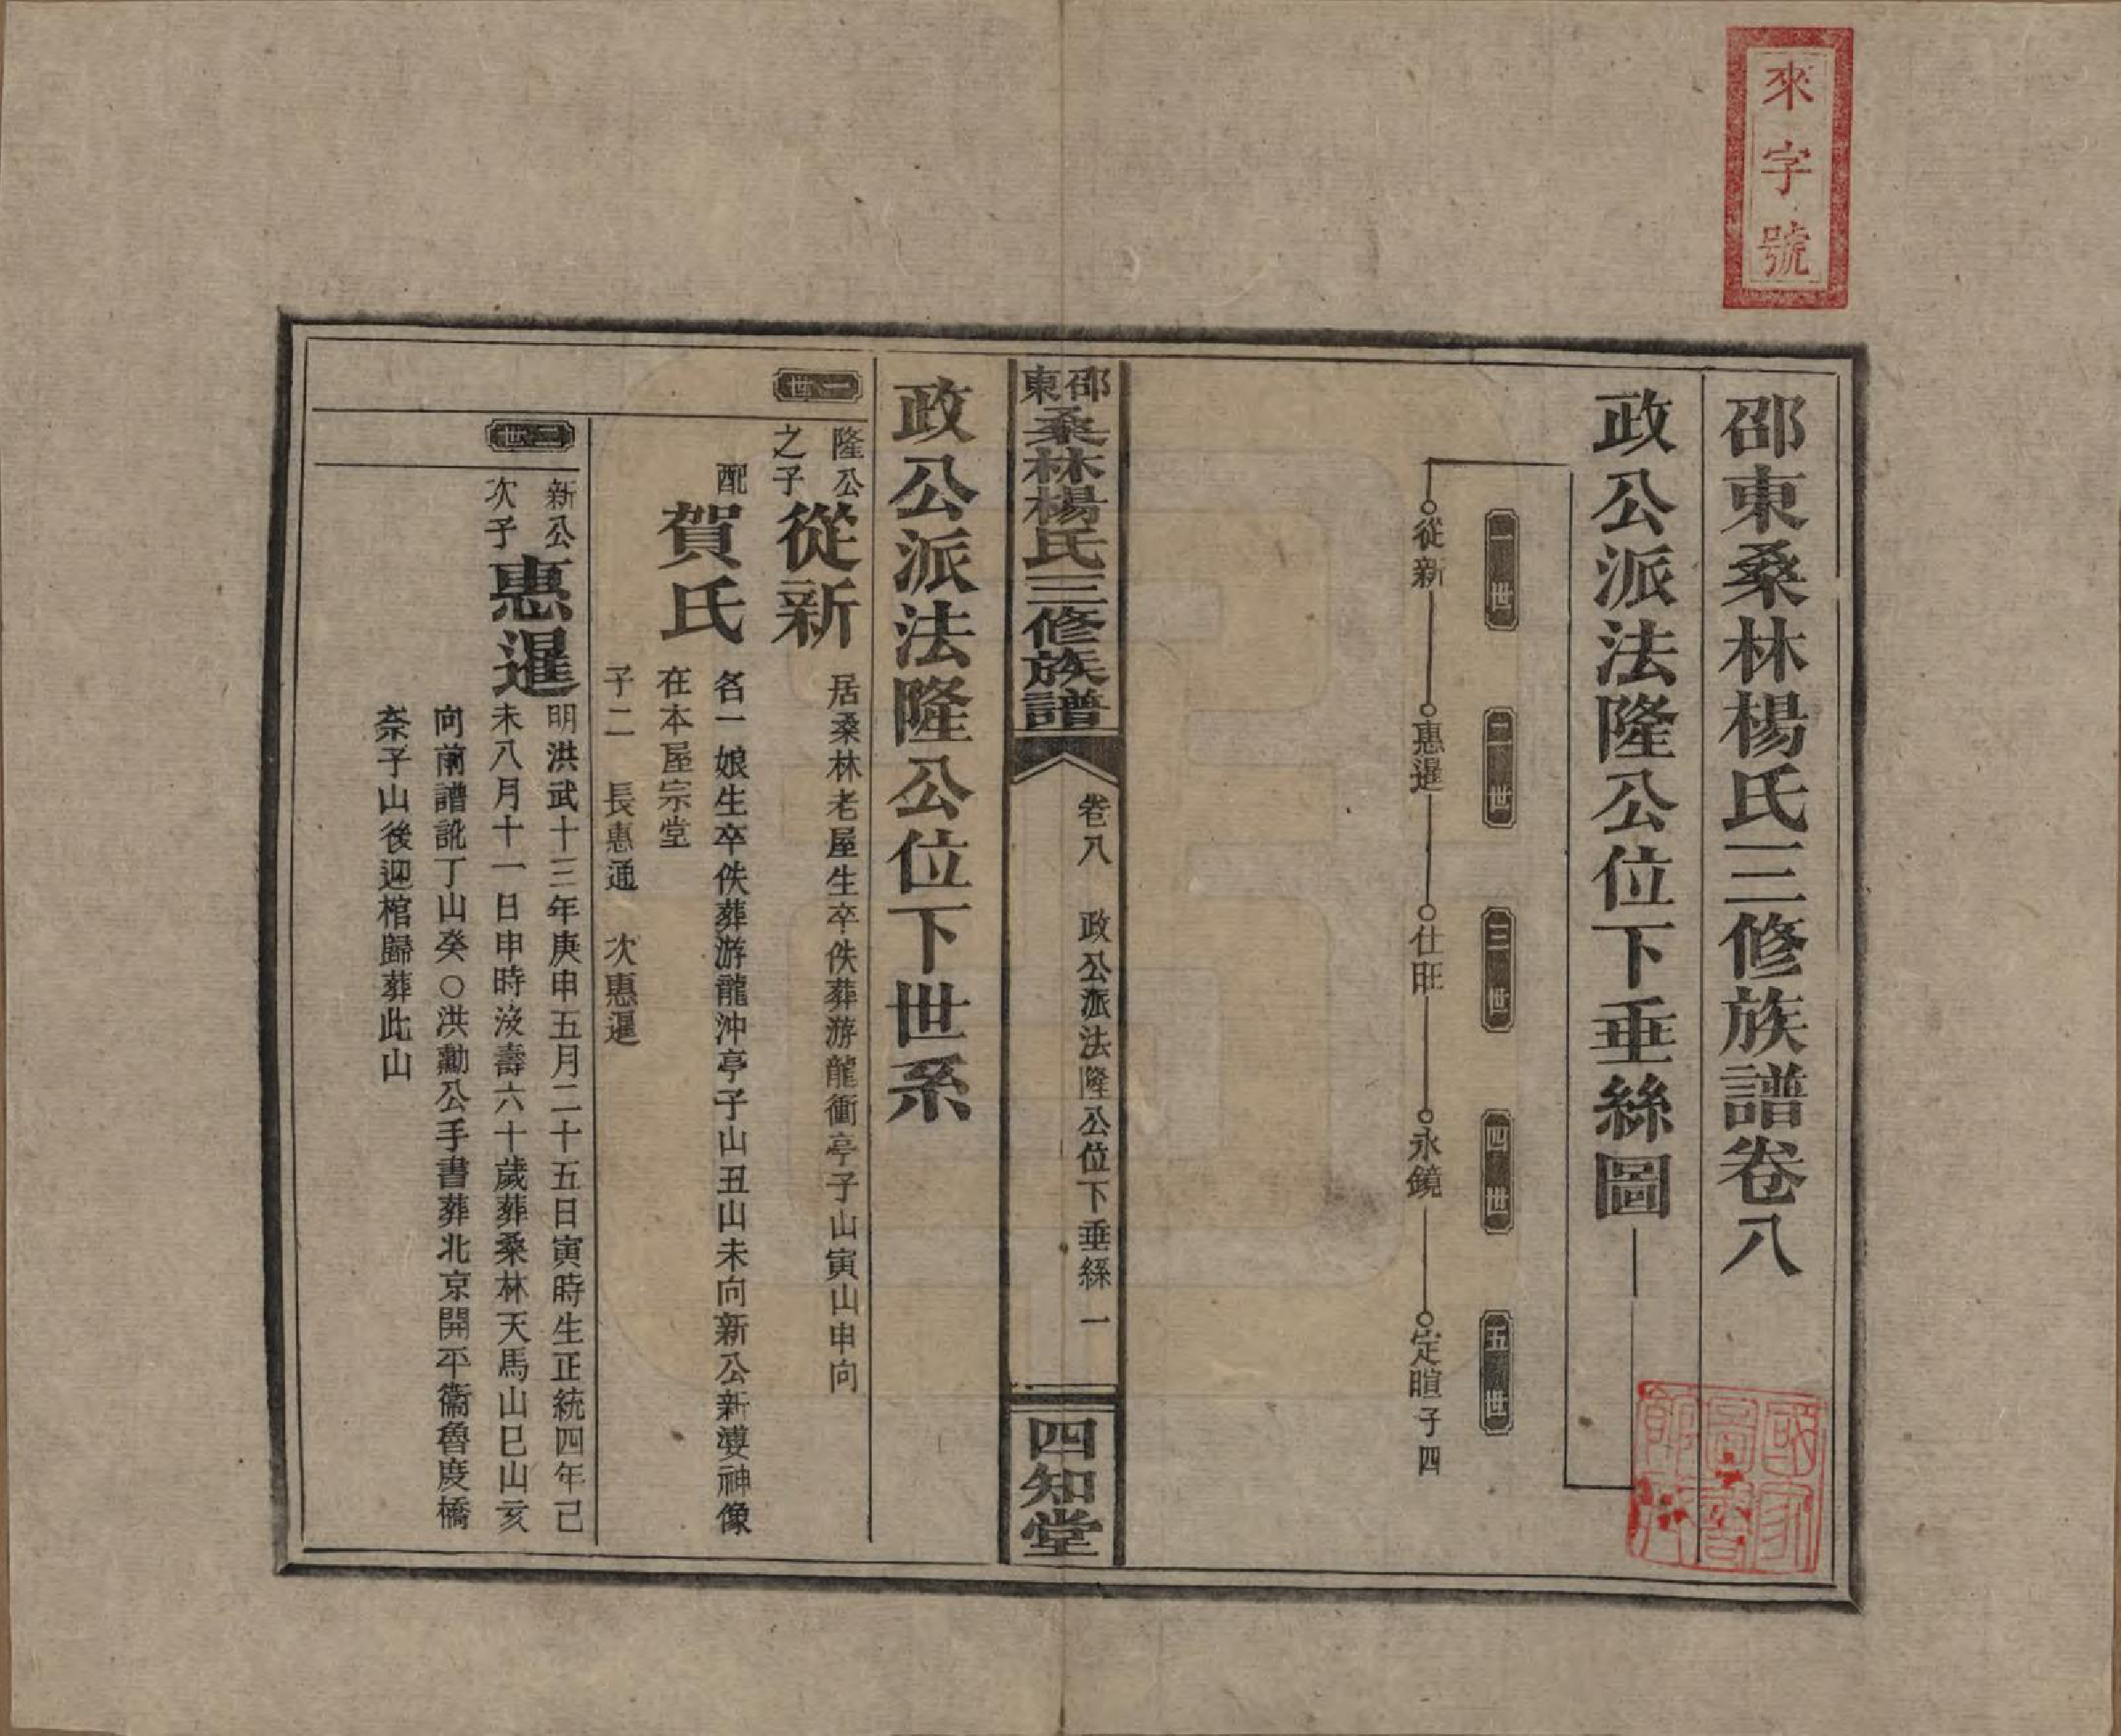 來字號
邵東桑林楊氏三修族譜卷八
政公派法隆公位下垂絲圖
一世
二世
三世
四世
五世
從新
惠暹
仕旺
永鏡
定暄 子四
邵東桑林楊氏三修族譜
卷八 政公派法隆公位下垂絲 一
四知堂
政公派法隆公位下世系
一世
隆公之子
從新
居桑林老屋生卒佚葬游龍衝亭子山寅山申向
配
賀氏
名一娘生卒佚葬游龍沖亭子山丑山未向新公新婆神像
在本屋宗堂
子二 長惠通 次惠暹
二世
新公次子
惠暹
明洪武十三年庚申五月二十五日寅時生正統四年己
未八月十一日申時歿壽六十歲葬桑林天馬山巳山亥
向前譜訛丁山癸○洪勳公手書葬北京開平衞魯度橋
奈子山後迎棺歸葬此山